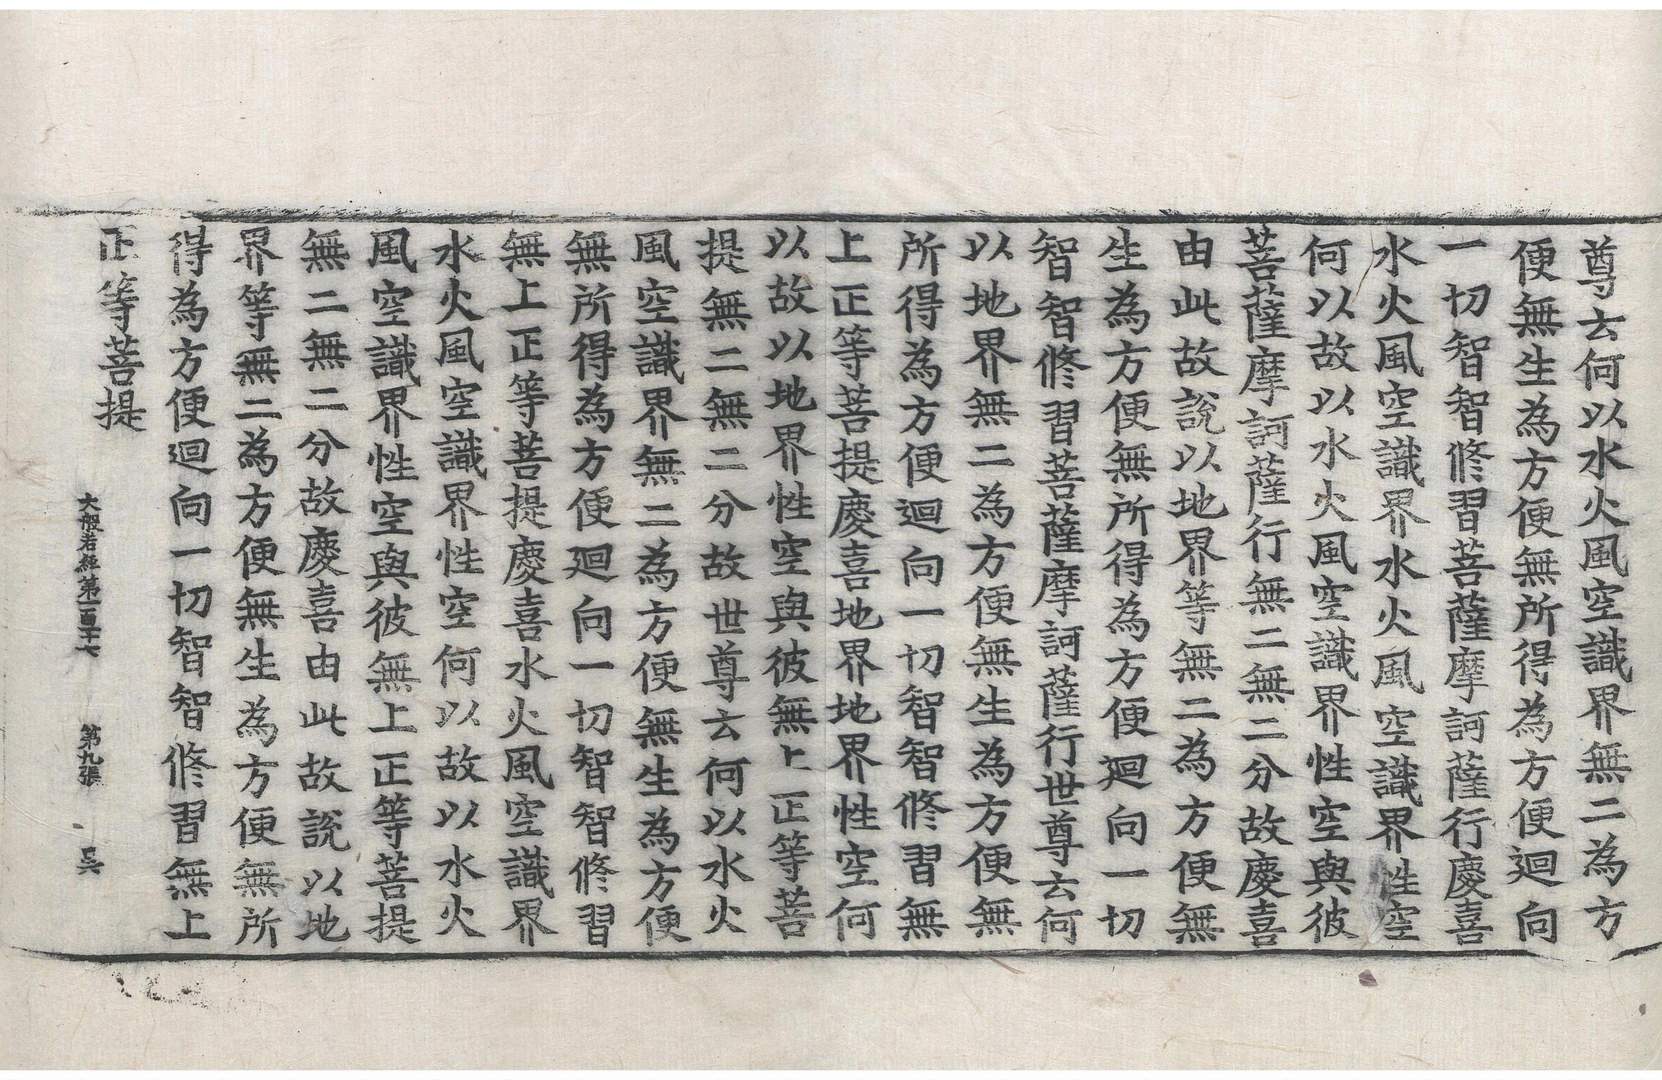 尊云何以水火風空識界無二為方
便無生為方便無所得為方便迴向
一切智智修習菩薩摩訶薩行慶喜
水火風空識界水火風空識界性空
何以故以水火風空識界性空與彼
菩薩摩訶薩行無二無二分故慶喜
由此故說以地界等無二為方便無
生為方便無所得為方便迴向一切
智智修習菩薩摩訶薩行世尊云何
以地界無二為方便無生為方便無
所得為方便迴向一切智智修習無
上正等菩提慶喜地界地界性空何
以故以地界性空與彼無上正等菩
提無二無二分故世尊云何以水火
風空識界無二為方便無生為方便
無所得為方便迴向一切智智修習
無上正等菩提慶喜水火風空識界
水火風空識界性空何以故以水火
風空識界性空與彼無上正等菩提
無二無二分故慶喜由此故說以地
界等無二為方便無生為方便無所
得為方便迴向一切智智修習無上
正等菩提
大般若經第一百十七 第九張 吳